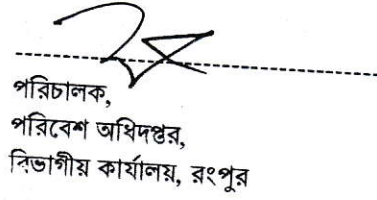 পরিচালক,
পরিবেশ অধিদপ্তর,
বিভাগীয় কার্যালয়, রংপুর